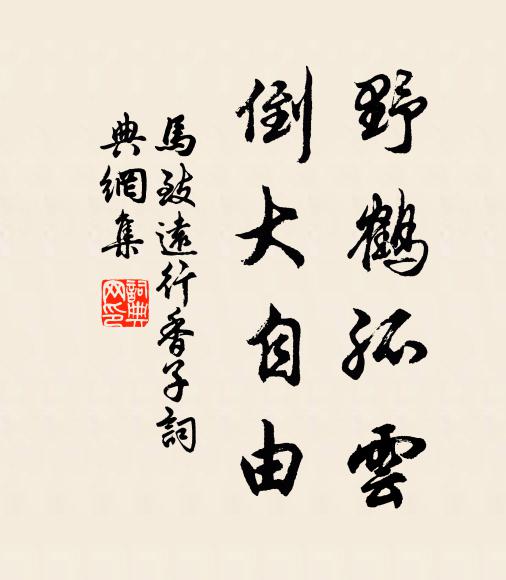 野鶴孤雲
倒大自由
馬致遠行香子詞
典網集
詞典網印